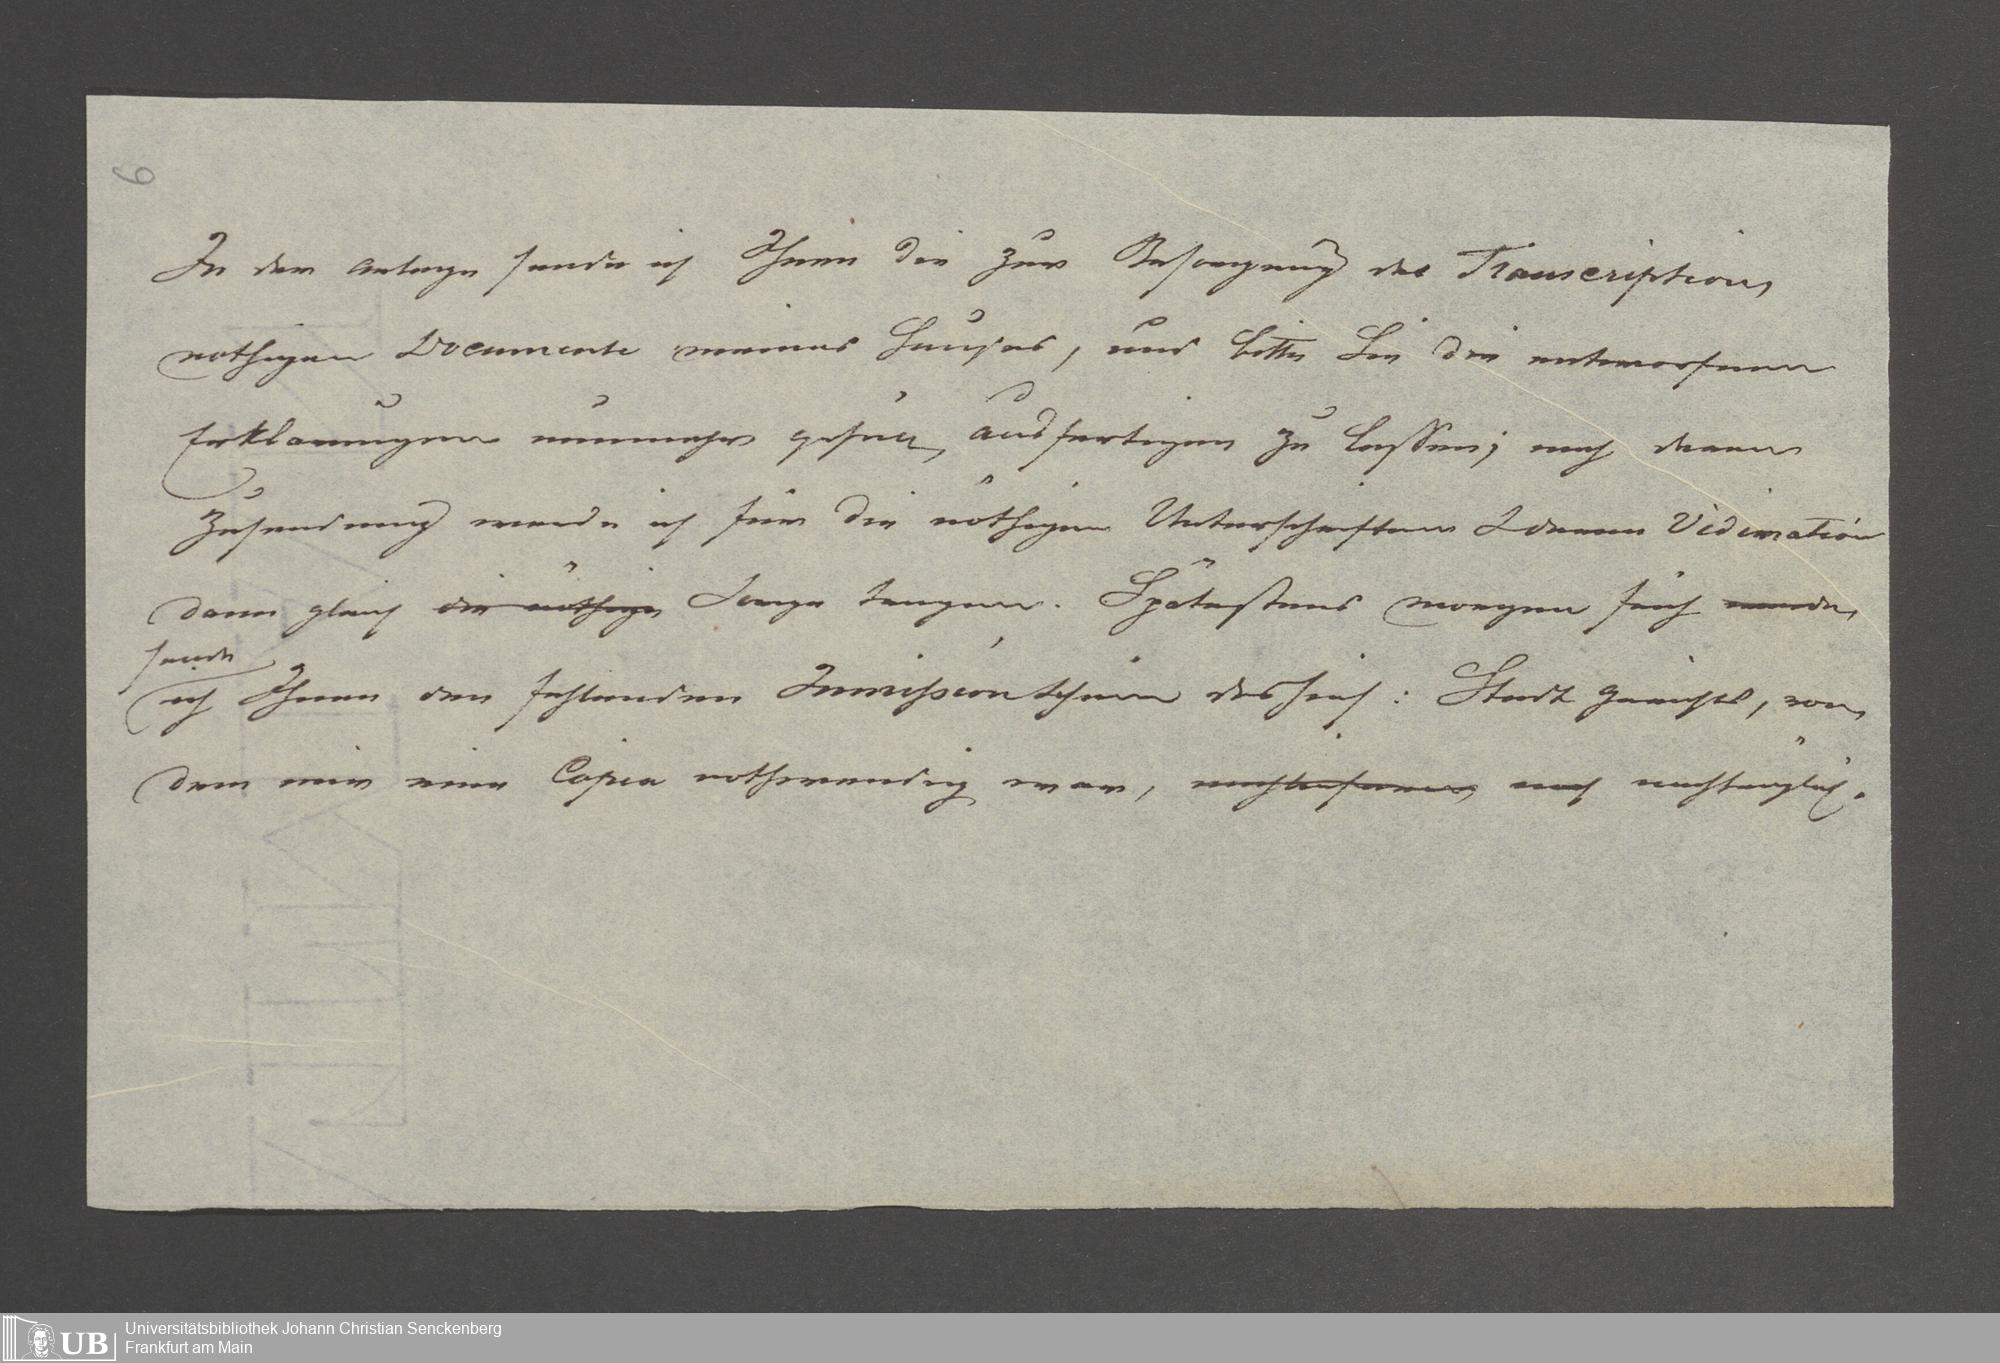 6
In der anlage sende ich Ihnen die zur Besorgung der Transcription
nothigen Documente meines Hauses, und bitte Sie die entworfenen
Erklärungen nunmehr gefäll. ausfertigen zu lassen; nach deren
Zusendung werde ich für die nöthigen Unterschriften & deren Vidimation
dann gleich die nöthige Sorge tragen. Spätestens morgen früh werde
sende
ich Ihnen den fehlenden Immissionsschein des hies: Stadt Gerichts, von
dem mir eine Copia nothwendig war, nachliefern, noch nachträglich.
UB
Universitätsbibliothek Johann Christian Senckenberg
Frankfurt am Main